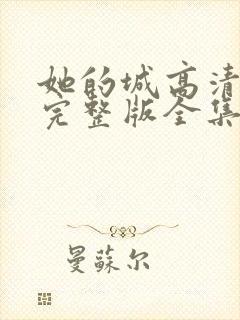 她的城高清
完整版全集
曼蘇尔